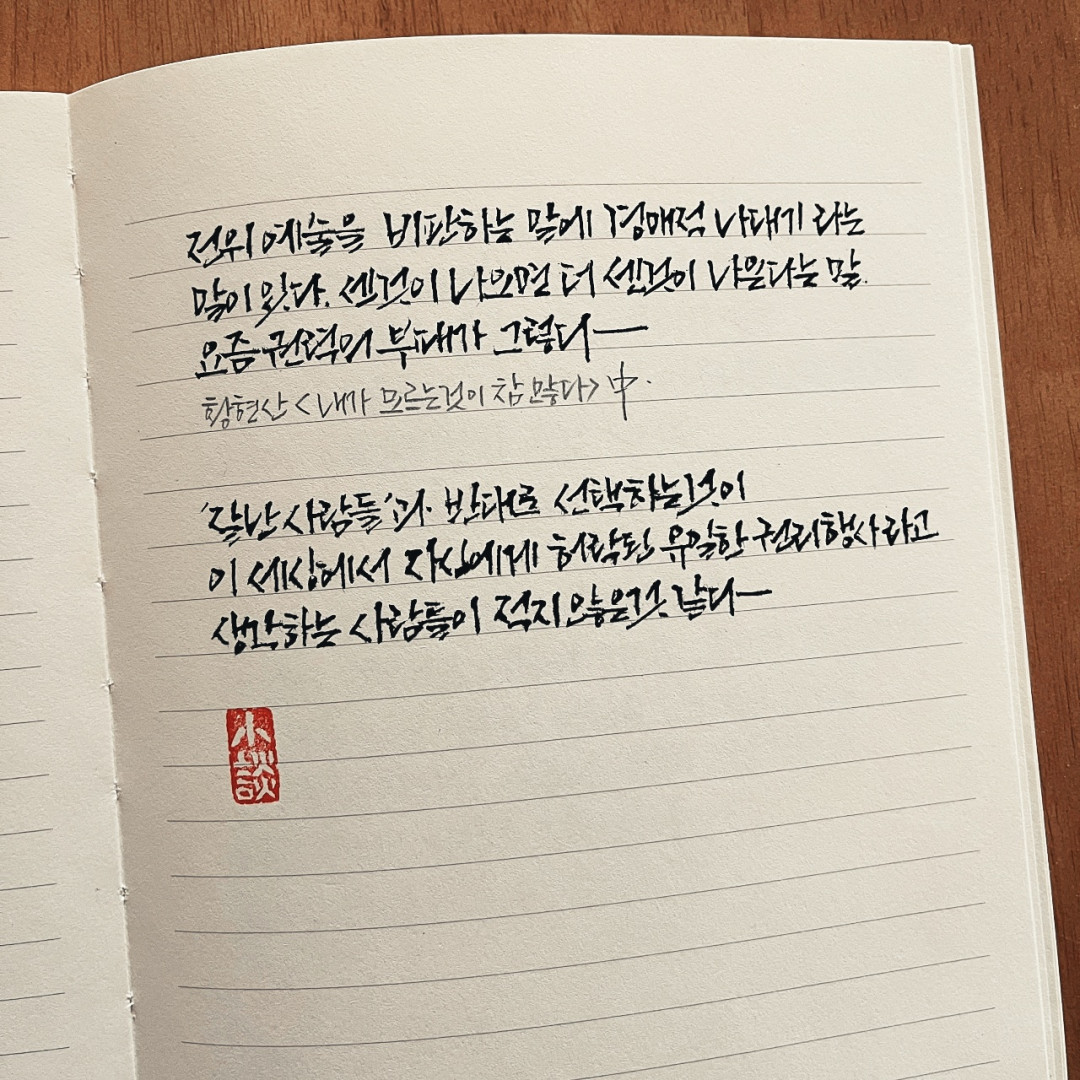 전위예술을 비판하는 말에 경매적 나대기 라는
말이 있다. 센것이 나오면 더 센것이 나온다는 말.
요즘 권력의 부패가 그렇다—
황현산 <내가 모르는것이 참 많다> 中.
'잘난 사람들'과 반대로 선택하는것이
이 세상에서 자신에게 허락된 유일한 권리행사라고
생각하는 사람들이 적지않은것 같다—
小談